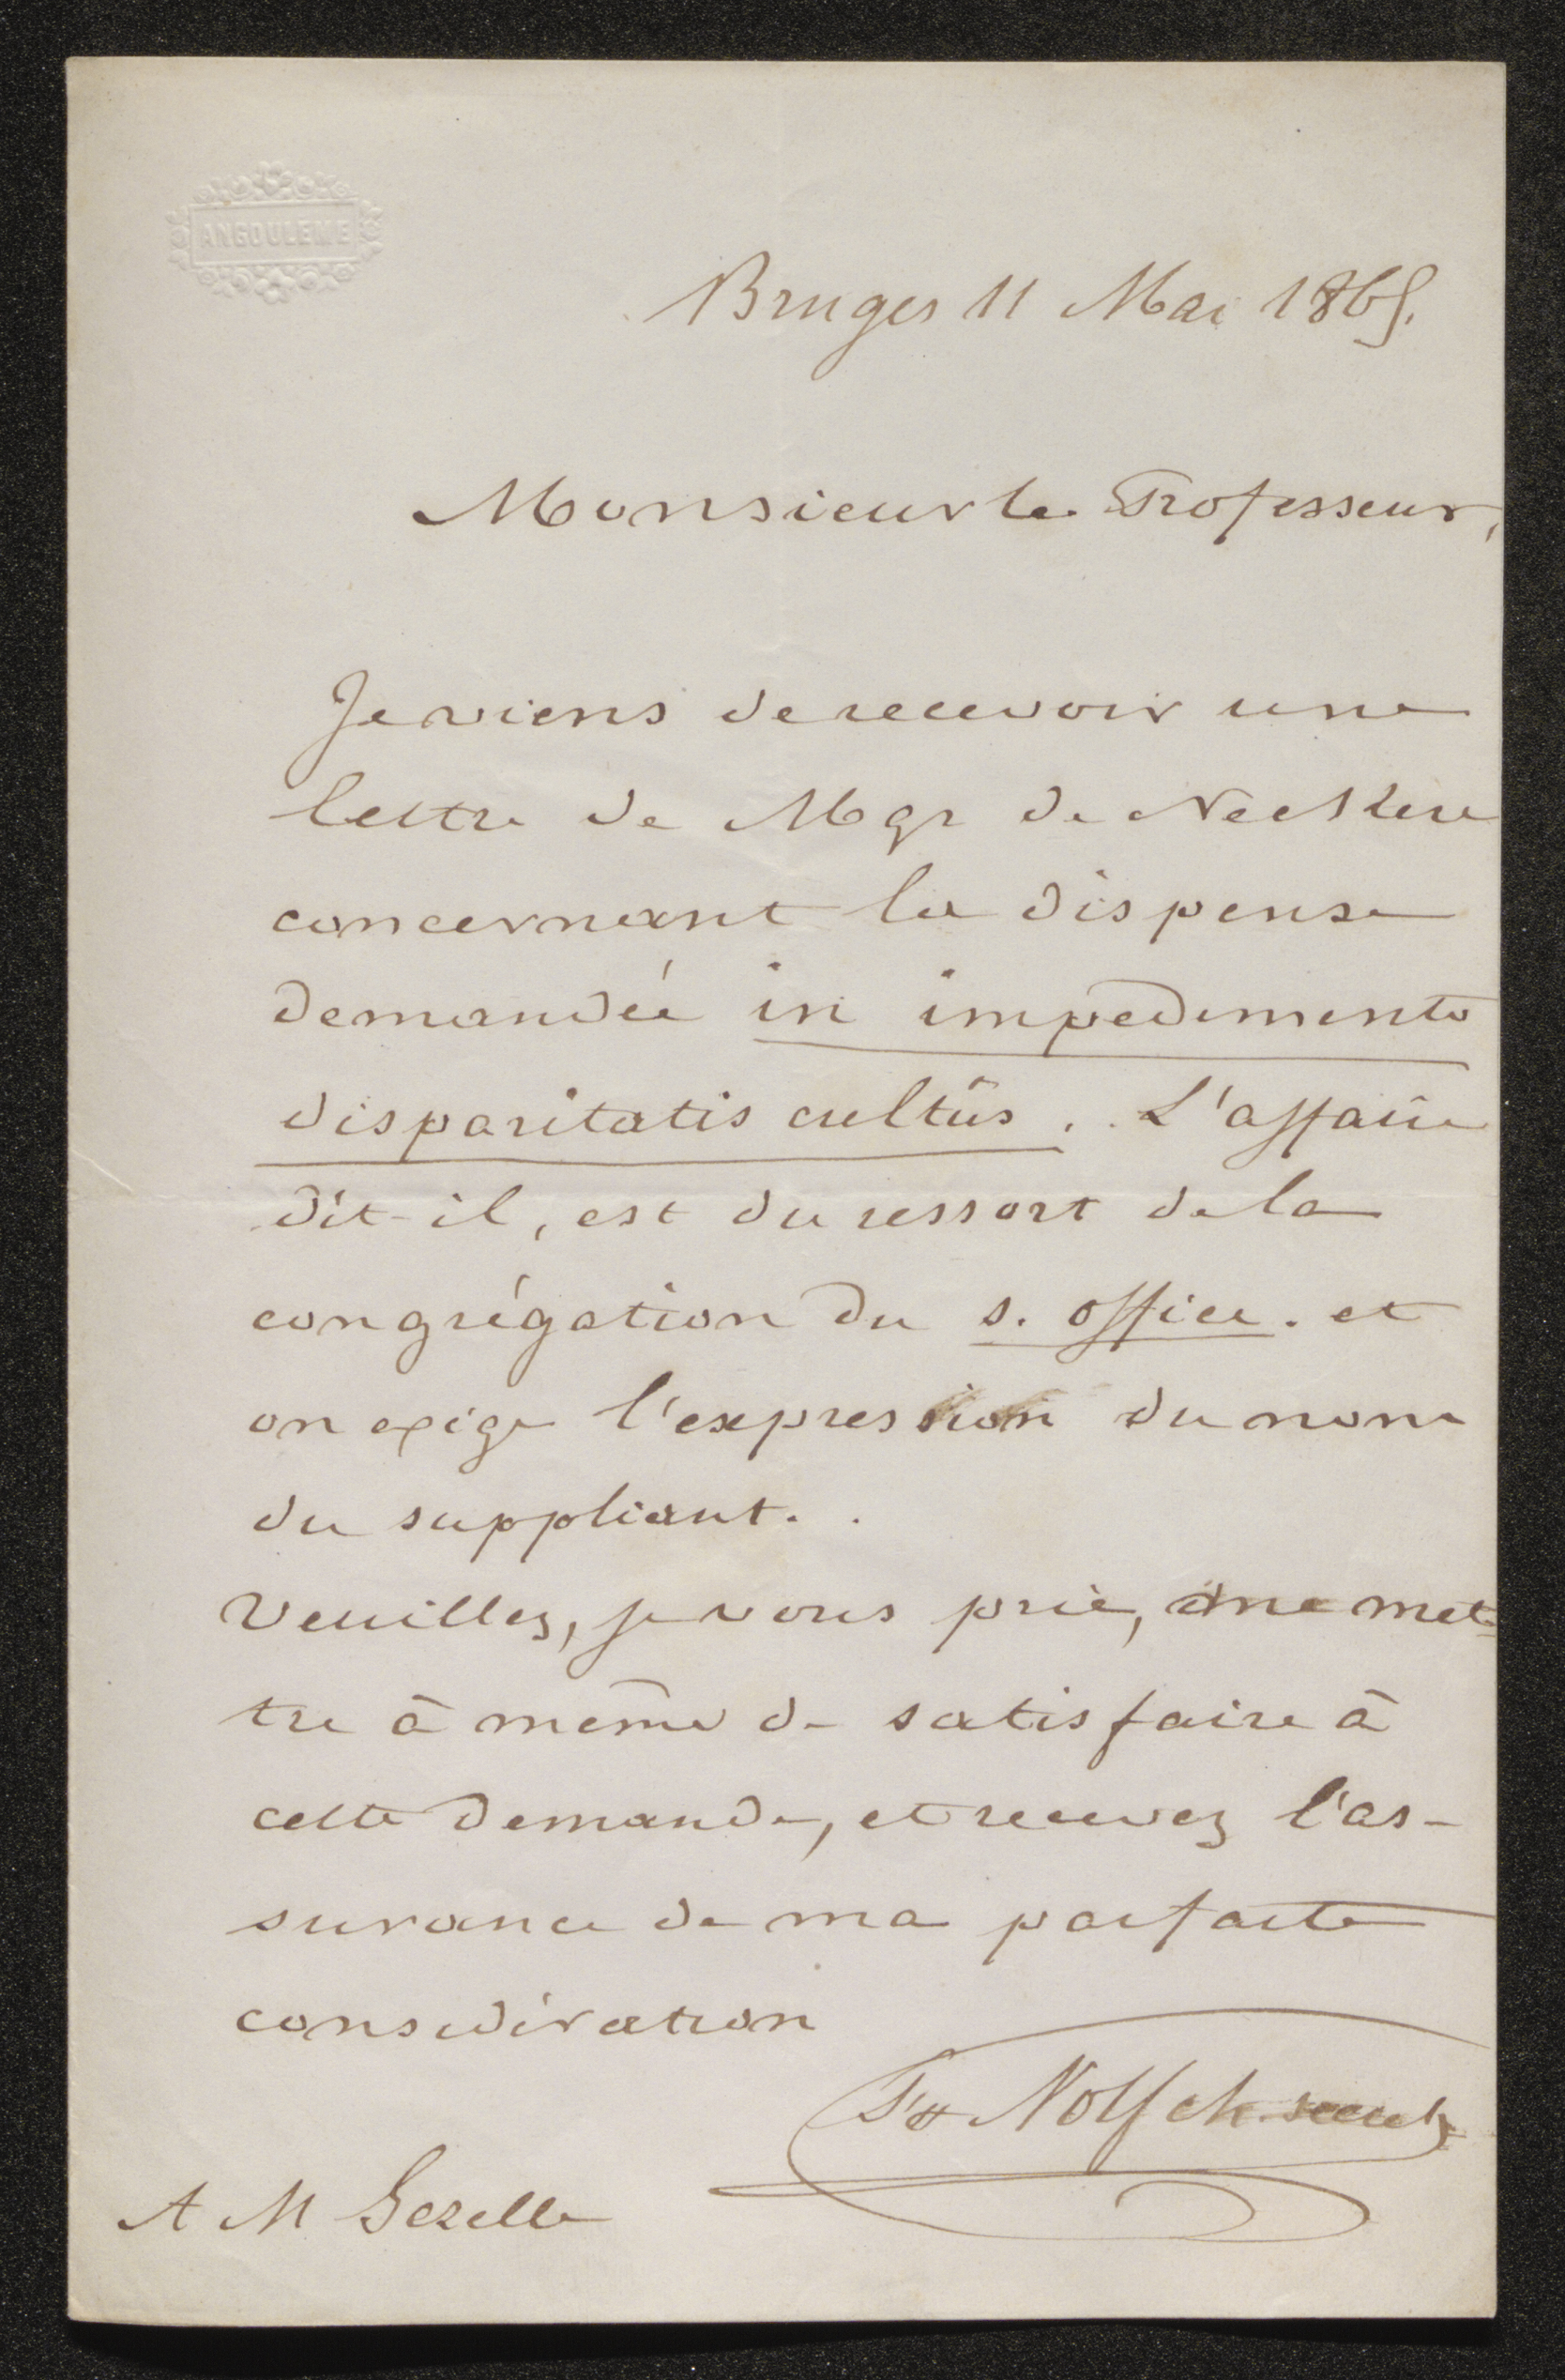 ANGOULEME
Bruges 11 Mai 1865.
Monsieur le Professeur,
Je viens de recevoir une
lettre de Mgr de Neckere
concernant la dispense
demandée in impedimento
disparitatis cultûs. L'affaire
dit-il, est du ressort de la
congrégation du s. office. et
on exige l'expression du nom
du suppliant.
Veuillez, je vous prie, me met-
tre à même de satisfaire à
cette demande, et recevez l'as-
surance de ma parfaite
considération
Nolf ch. secret
A M Gezelle